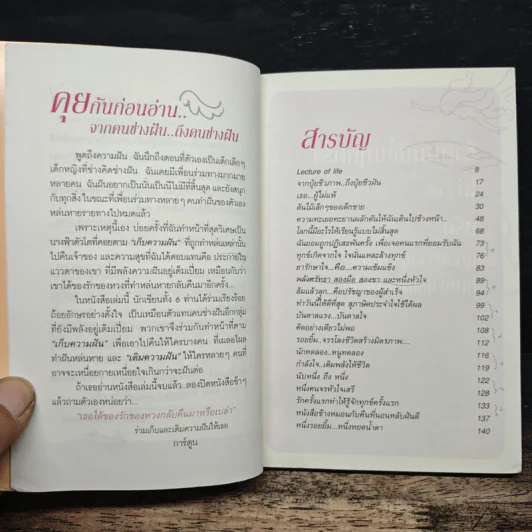 คุยกันก่อนอ่าน..
จากคนช่างฝัน..ถึงคนช่างฝัน
พูดถึงความฝัน ฉันนึกถึงตอนที่ตัวเองเป็นเด็กเล็กๆ
เด็กหญิงที่ช่างคิดช่างฝัน ฉันเคยมีเพื่อนร่วมทางมากมาย
หลายคน ฉันฝันอยากเป็นนั่นเป็นนี่ไม่มีที่สิ้นสุด และยังสนุก
กับทุกสิ่ง ในขณะที่เพื่อนร่วมทางหลาย ๆ คนทำฝันของตัวเอง
หล่นหายรายทางไปหมดแล้ว
เพราะเหตุนี้เอง บ่อยครั้งที่ฉันทำหน้าที่สุดวิเศษเป็น
นางฟ้าตัวโตที่คอยตาม "เก็บความฝัน" ที่ถูกทำหล่นเหล่านั้น
ไปคืนเจ้าของ และความสุขที่ฉันได้ตอบแทนคือ ประกายใน
แววตาของเขา ที่มีพลังความฝันอยู่เต็มเปี่ยม เหมือนกับว่า
เขาได้ของรักของหวงที่ทำหล่นหายกลับคืนมาอีกครั้ง...
ในหนังสือเล่มนี้ นักเขียนทั้ง 6 ท่านได้ร่วมเรียงร้อย
ถ้อยอักษรอย่างตั้งใจ เป็นเหมือนตัวแทนคนช่างฝันอีกกลุ่ม
ที่ยังมีพลังฝันอยู่เต็มเปี่ยม พวกเขาจึงร่วมกันทำหน้าที่ตาม
"เก็บความฝัน" เพื่อเอาไปคืนให้ใครบางคน ที่เผลอไผล
ทำฝันหล่นหาย และ "เติมความฝัน" ให้ใครหลาย ๆ คนที่
อาจจะเหนื่อยกายเหนื่อยใจเกินกว่าจะฝันต่อ
ถ้าเธออ่านหนังสือเล่มนี้จบแล้ว...ลองปิดหนังสือช้าๆ
แล้วถามตัวเองหน่อยว่า...
"เธอได้ของรักของหวงกลับคืนมาหรือเปล่า"
ร่วมเก็บและเติมความฝันให้เธอ
การ์ตูน
สารบัญ
Lecture of life 8
จากปุ๋ยชีวภาพ..ถึงปุ๋ยชีวฝัน 17
เธอ...ผู้ไม่แพ้ 24
ต้นไม้เล็กๆของเด็กชาย 30
ความทะเยอทะยานผลักดันให้ฉันเดินไปข้างหน้า.. 48
โลกนี้มีอะไรให้เรียนรู้แบบไม่สิ้นสุด 68
ฉันยอมถูกปฏิเสธพันครั้ง เพื่อเจอคนแรกที่ยอมรับฉัน 73
ทุกข์เกิดจากใจ ใจฉันแหละล้างทุกข์ 76
ยารักษาใจ...คือ...ความเข้มแข็ง 83
พลังศรัทธา สองมือ สองขา และหนึ่งหัวใจ 89
ล้มแล้วลุก...คือปรัชญาของผู้สำเร็จ 94
ทำวันนี้ให้ดีที่สุด สุภาษิตประจำใจใช้ได้ผล 99
บันดาลแรง...บันดาลใจ 102
คิดอย่างเดียวไม่พอ 108
รอยยิ้ม..จรรโลงชีวิตสร้างมิตรภาพ.... 112
นักทดลอง..หนูทดลอง 116
กำลังใจ..เติมพลังให้ชีวิต 119
นับหนึ่ง ถึง หนึ่ง 122
หนึ่งคนจรหัวใจเสรี 128
รักครั้งแรกทำให้รู้จักทุกข์ครั้งแรก 133
หนังสือข้างหมอนกับคืนที่นอนหลับฝันดี 137
หนึ่งรอยยิ้ม...หนึ่งหยดน้ำตา 140